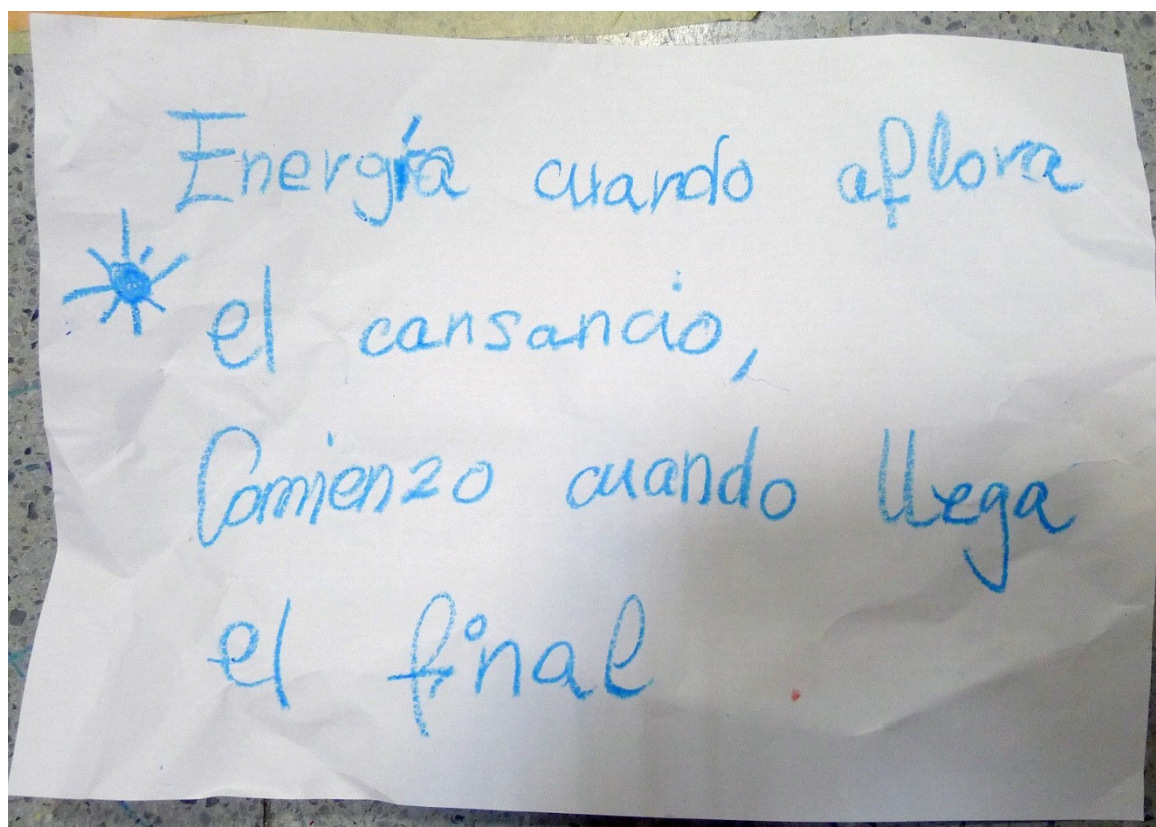 Energía cuando aflora
el cansancio,
Comienzo cuando llega
el final